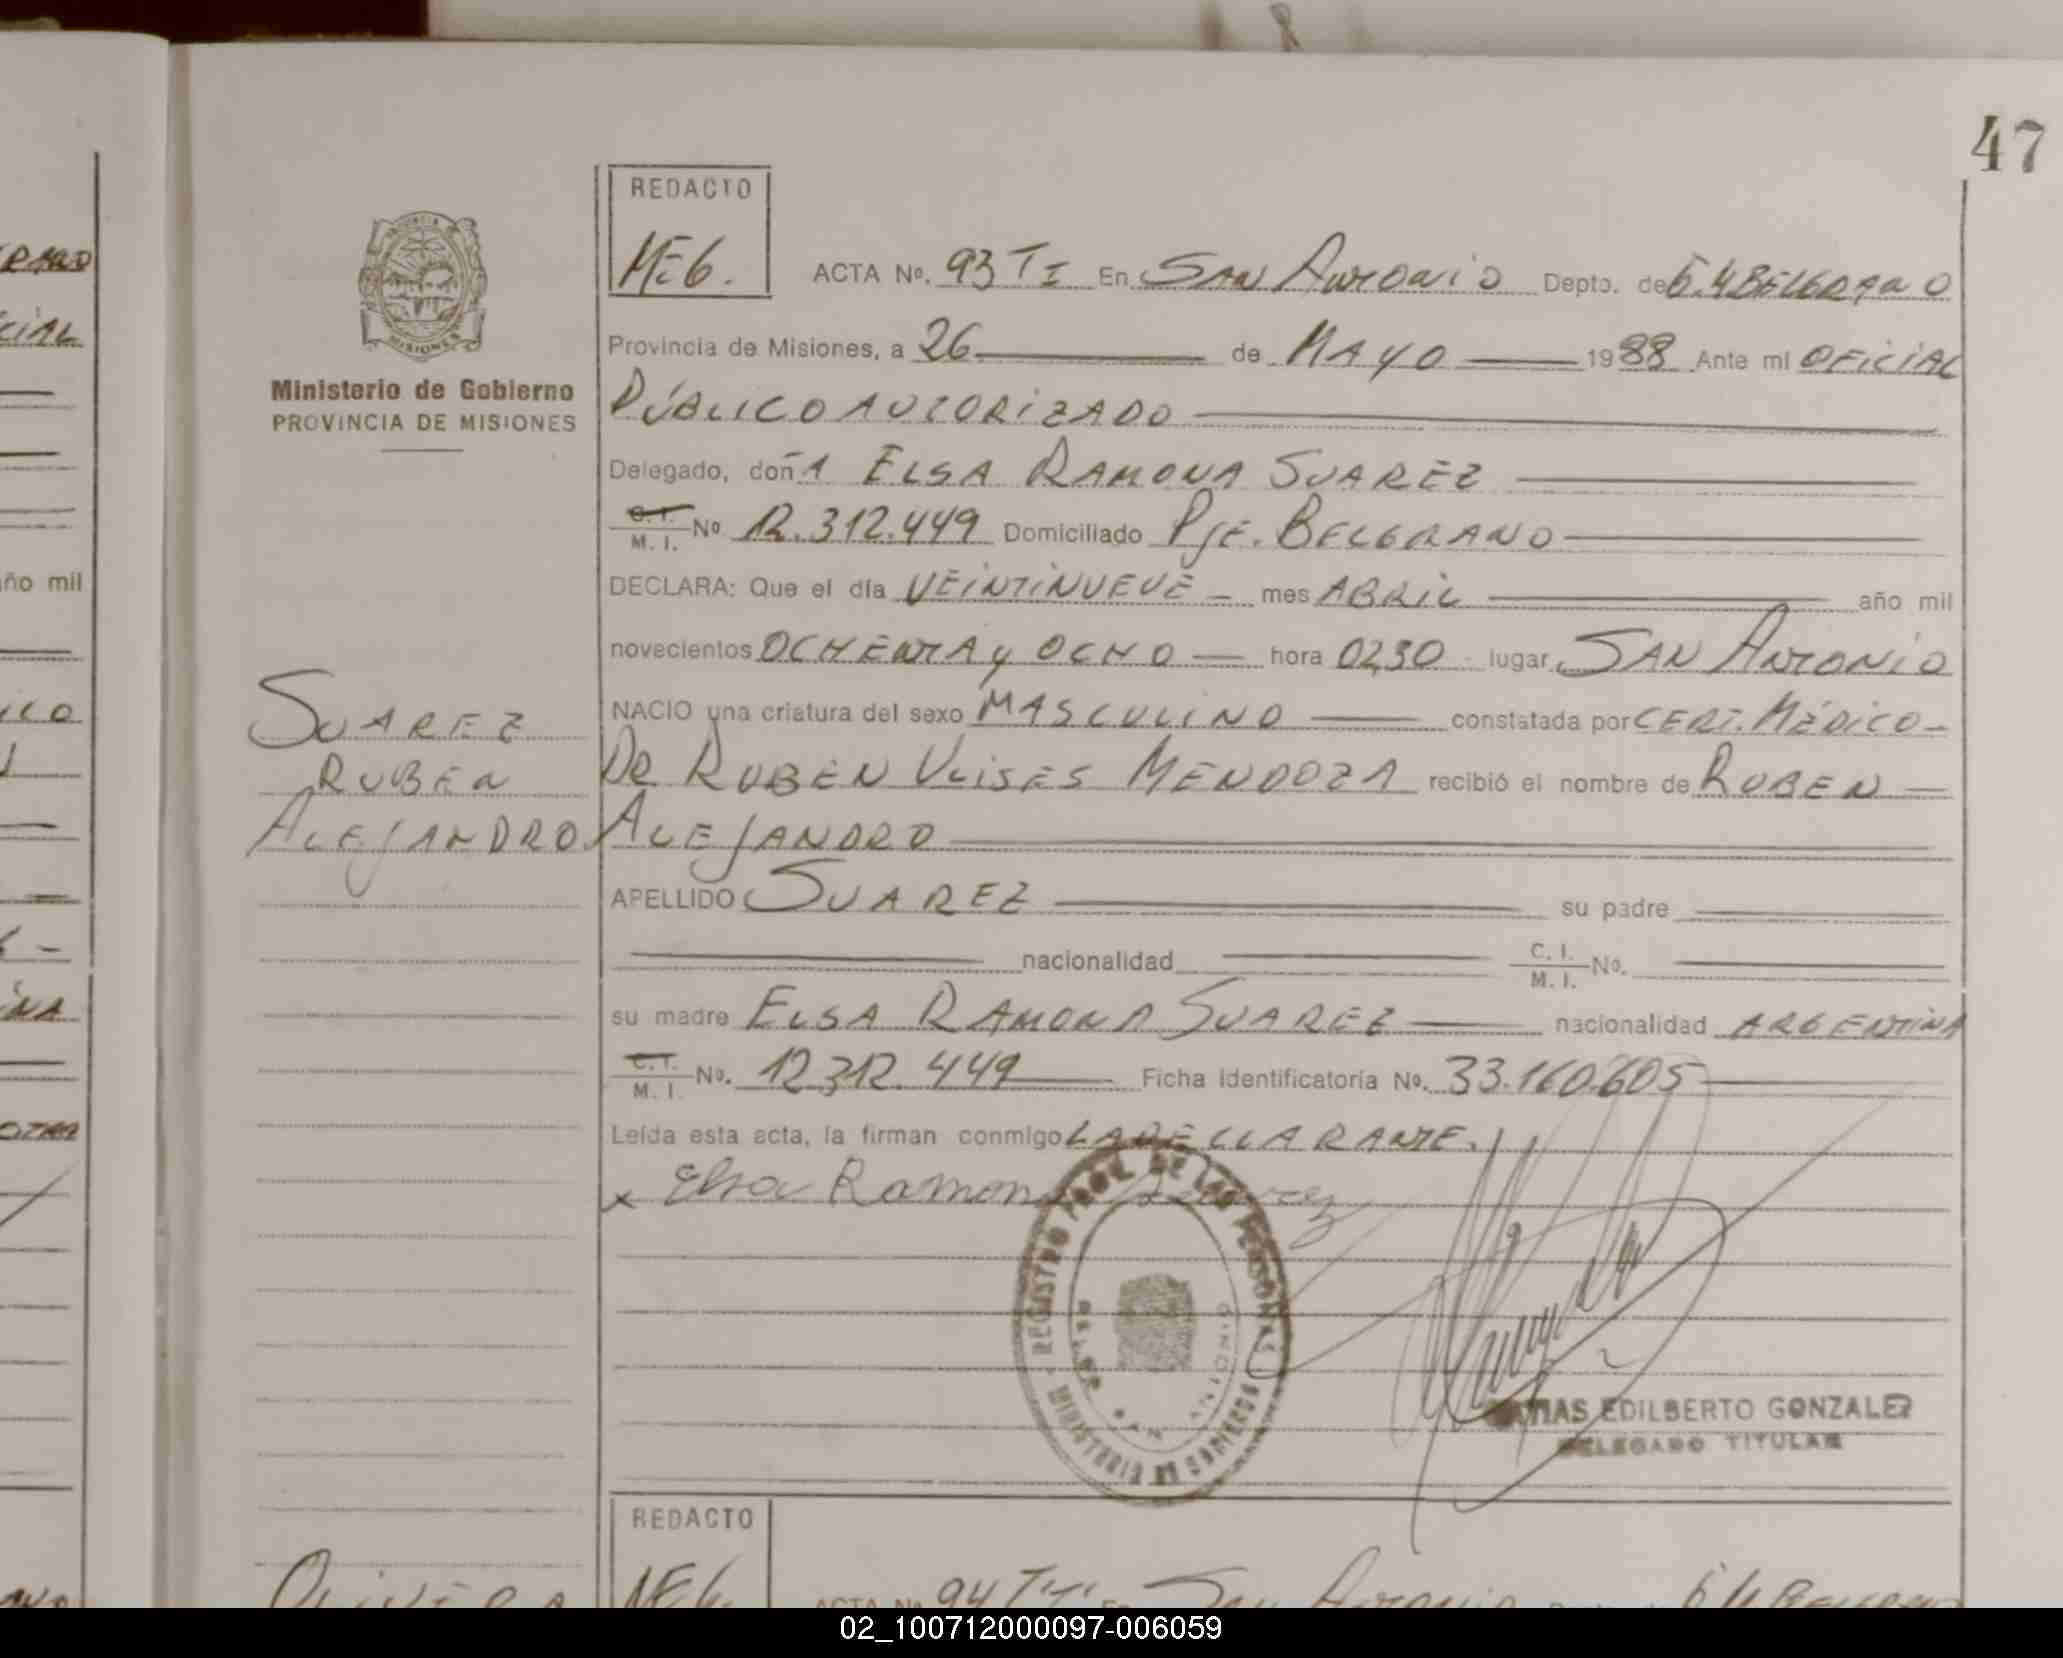 47
REDACTO
MEG.
ACTA No. 93 TI En SAN ANTONIO Depto. de G.M BELGRANO
Provincia de Misiones, a 26 de MAYO 1988 Ante mi OFICIAL
PÚBLICO AUTORIZADO
Delegado, doñA ELSA RAMONA SUAREZ
C. I.
M. I. No 12.312.449 Domiciliado PJE. BELGRANO
DECLARA: Que el día VEINTINUEVE mes ABRIL año mil
novecientos OCHENTA y OCHO hora 02,30 lugar SAN ANTONIO
NACIO una criatura del sexo MASCULINO constatada por CERT. MÉDICO
DR RUBEN ULISES MENDOZA recibió el nombre de RUBEN
ALEJANDRO
APELLIDO SUAREZ su padre
nacionalidad C. I.
M. I. No.
su madre ELSA RAMONA SUAREZ nacionalidad ARGENTINA
C. I.
M. I. No. 12.312.449 Ficha Identificatoria No. 33.160.605
Leída esta acta, la firman conmigo LA DECLARANTE.
x Elsa Ramona Suarez
REGISTRO PROV. DE LAS PERSONAS
MINISTERIO DE GOBIERNO
SAN ANTONIO
EDILBERTO GONZALEZ
DELEGADO TITULAR
MISIONES
Ministerio de Gobierno
PROVINCIA DE MISIONES
SUAREZ
RUBEN
ALEJANDRO
REDACTO
MEG.
ACTA No 94 En SAN ANTONIO G.M BELGRANO
OLIVERA
año mil
02_100712000097-006059